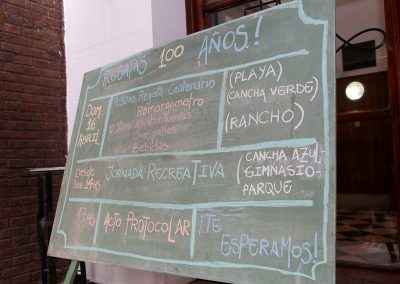 REGATAS 100 AÑOS!
DOM
16
ABRIL
9:30HS Regata Centenario
Remorgometro
12:30HS Hamburguesas
Choripanes
Bebidas
(PLAYA)
(CANCHA VERDE)
(RANCHO)
Desde
las 14HS
JORNADA RECREATIVA
(CANCHA AZUL-
GIMNASIO-
PARQUE
17HS
ACTO PROTOCOLAR
¡TE
ESPERAMOS!